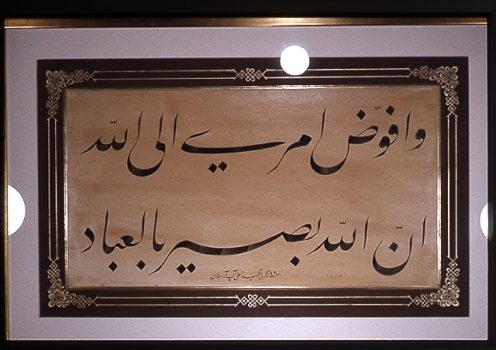 وافوّض امری الی اللّه
انّ اللّه بصیر بالعباد